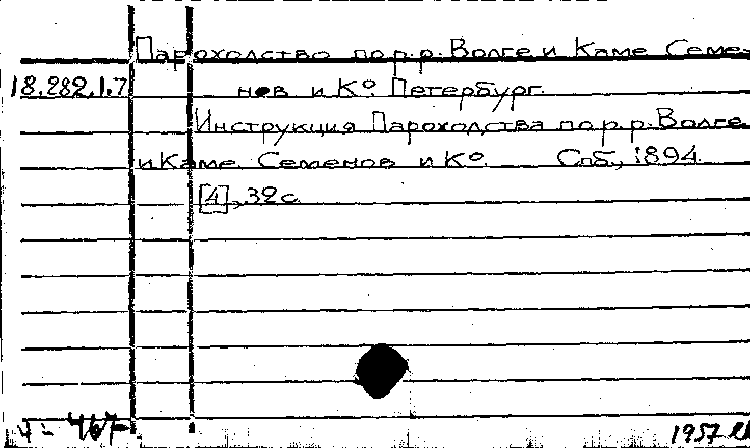 Пароходство по р.р. Волге и Каме Семе-
18.282.1.7
нов и К°. Петербург.
Инструкция Пароходства по р.р. Волге
и Каме Семенов и К°. Спб., 1894.
[4], 32 с.
Ч-467
1957